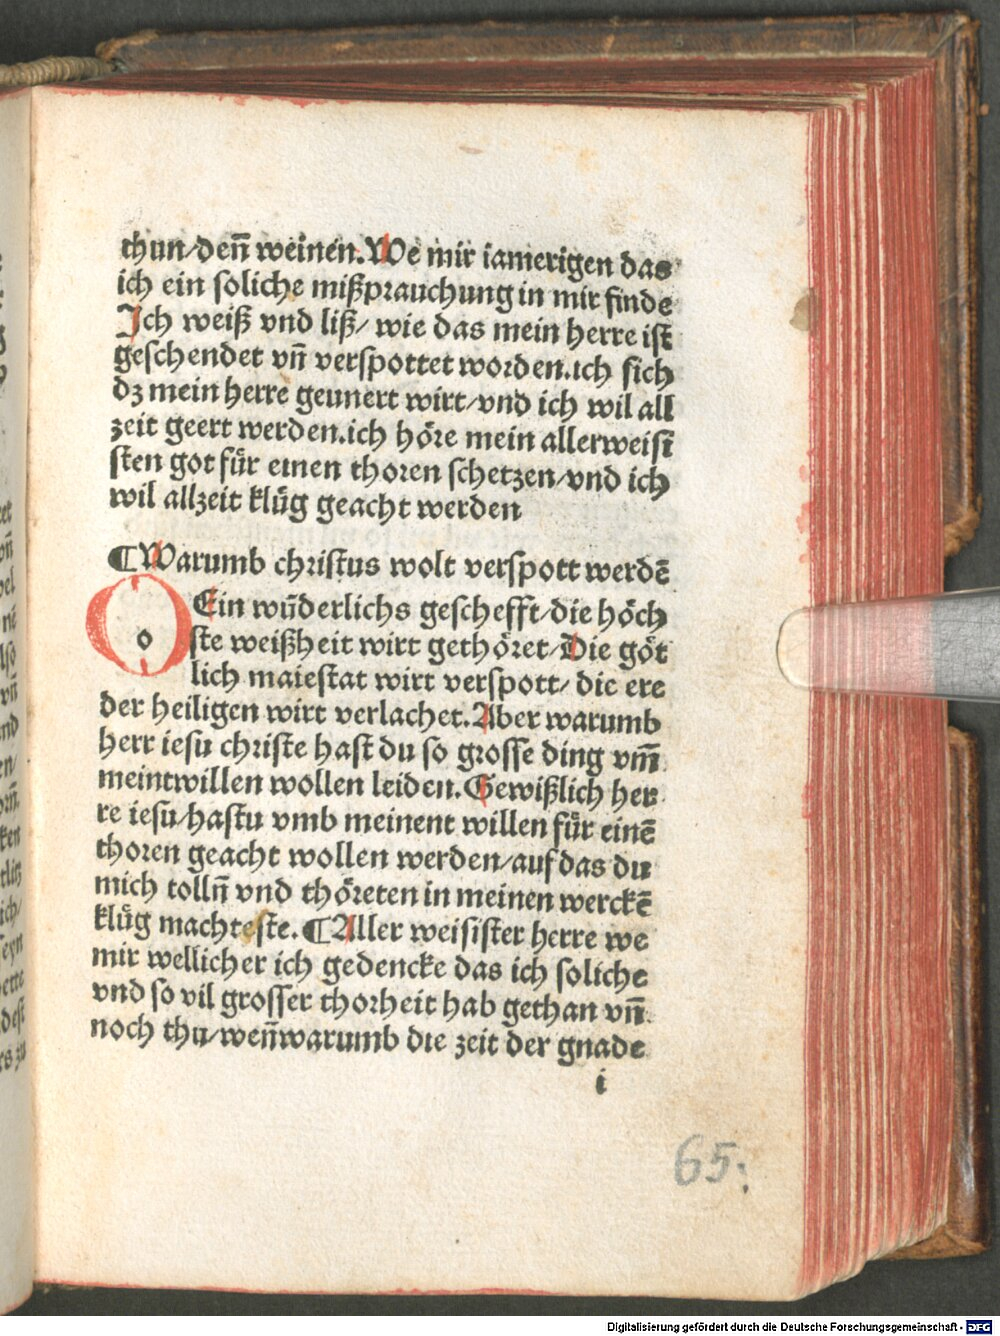 thun/deñ weinen.We mir iamerigen das
ich ein soliche mißprauchung in mir finde
Ich weiß vnd liß/ wie das mein herre ist
geschendet vñ verspottet worden.ich sich
dz mein herre geunert wirt/vnd ich wil all
zeit geert werden.ich höre mein allerweisi
sten got für einen thoren schetzen/vnd ich
wil allzeit klüg geacht werden
¶Warumb christus wolt verspott werdē
O Ein wūderlichs geschefft/die höch
ste weißheit wirt gethöret/Die göt
lich maiestat wirt verspott/ die ere
der heiligen wirt verlachet.Aber warumb
herr iesu christe hast du so grosse ding vm̄
meintwillen wollen leiden.Gewißlich her
re iesu/hastu vmb meinent willen für einē
thoren geacht wollen werden/auf das du
mich tollñ vnd thöreten in meinen werckē
klüg machteste.¶Aller weisister herre we
mir wellicher ich gedencke das ich soliche
vnd so vil grosser thorheit hab gethan vñ
noch thu/weñwarumb die zeit der gnade
i
65.
Digitalisierung gefördert durch die Deutsche Forschungsgemeinschaft - DFG